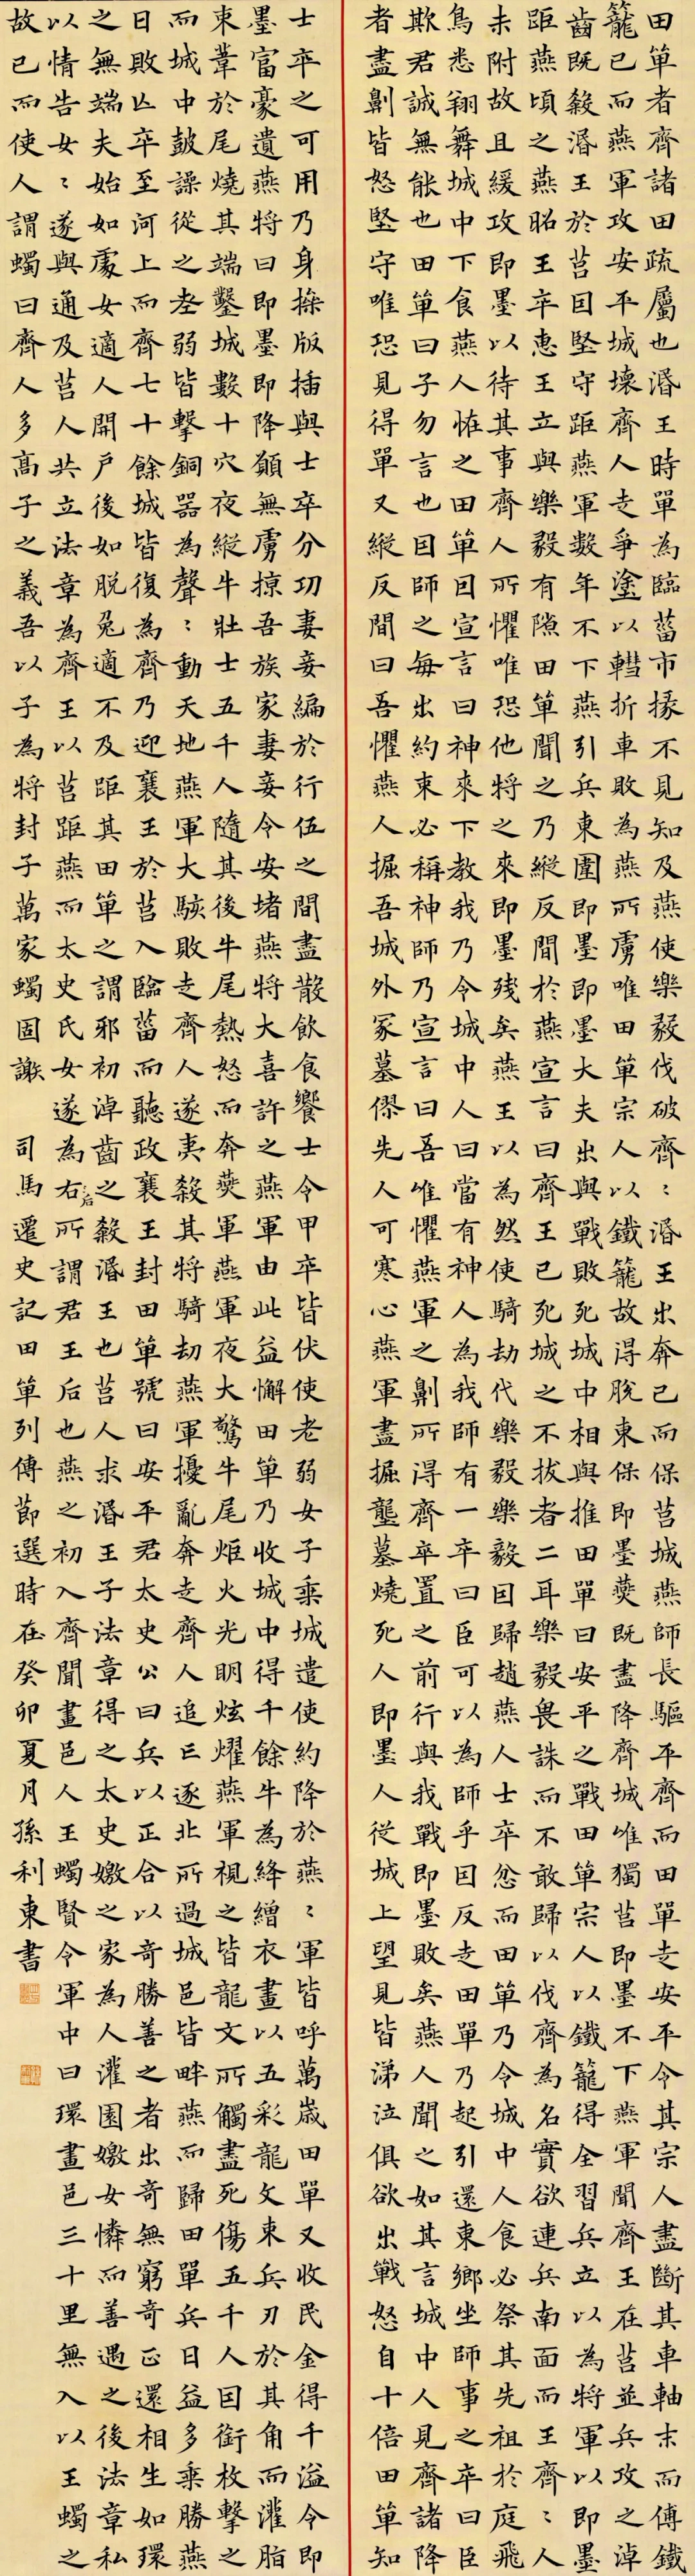 田單者齊諸田疏屬也湣王時單為臨菑市掾不見知及燕使樂毅伐破齊〻湣王出奔已而保莒城燕師長驅平齊而田單走安平令其宗人盡斷其車軸末而傅鐵
籠已而燕軍攻安平城壞齊人走爭塗以轊折車敗為燕所虜唯田單宗人以鐵籠故得脫東保即墨燕既盡降齊城唯獨莒即墨不下燕軍聞齊王在莒並兵攻之淖
齒既殺湣王於莒因堅守距燕軍數年不下燕引兵東圍即墨即墨大夫出與戰敗死城中相與推田單曰安平之戰田單宗人以鐵籠得全習兵立以為將軍以即墨
距燕頃之燕昭王卒惠王立與樂毅有隙田單聞之乃縱反間於燕宣言曰齊王已死城之不拔者二耳樂毅畏誅而不敢歸以伐齊為名實欲連兵南面而王齊〻人
未附故且緩攻即墨以待其事齊人所懼唯恐他將之來即墨殘矣燕王以為然使騎劫代樂毅樂毅因歸趙燕人士卒忿而田單乃令城中人食必祭其先祖於庭飛
鳥悉翔舞城中下食燕人怪之田單因宣言曰神來下教我乃令城中人曰當有神人為我師有一卒曰臣可以為師乎因反走田單乃起引還東鄉坐師事之卒曰臣
欺君誠無能也田單曰子勿言也因師之每出約束必稱神師乃宣言曰吾唯懼燕軍之劓所得齊卒置之前行與我戰即墨敗矣燕人聞之如其言城中人見齊諸降
者盡劓皆怒堅守唯恐見得單又縱反間曰吾懼燕人掘吾城外冢墓僇先人可寒心燕軍盡掘壟墓燒死人即墨人從城上望見皆涕泣俱欲出戰怒自十倍田單知
士卒之可用乃身操版插與士卒分功妻妾編於行伍之間盡散飲食饗士令甲卒皆伏使老弱女子乘城遣使約降於燕〻軍皆呼萬歲田單又收民金得千溢令即
墨富豪遺燕將曰即墨即降願無虜掠吾族家妻妾令安堵燕將大喜許之燕軍由此益懈田單乃收城中得千餘牛為絳繒衣畫以五彩龍文束兵刃於其角而灌脂
束葦於尾燒其端鑿城數十穴夜縱牛壯士五千人隨其後牛尾熱怒而奔燕軍燕軍夜大驚牛尾炬火光明炫燿燕軍視之皆龍文所觸盡死傷五千人因銜枚擊之
而城中鼓譟從之老弱皆擊銅器為聲〻動天地燕軍大駭敗走齊人遂夷殺其將騎劫燕軍擾亂奔走齊人追亡逐北所過城邑皆畔燕而歸田單兵日益多乘勝燕
日敗亡卒至河上而齊七十餘城皆復為齊乃迎襄王於莒入臨菑而聽政襄王封田單號曰安平君太史公曰兵以正合以奇勝善之者出奇無窮奇正還相生如環
之無端夫始如處女適人開戶後如脫兔適不及距其田單之謂邪初淖齒之殺湣王也莒人求湣王子法章得之太史嬓之家為人灌園嬓女憐而善遇之後法章私
以情告女〻遂與通及莒人共立法章為齊王以莒距燕而太史氏女遂為右后所謂君王后也燕之初入齊聞畫邑人王蠋賢令軍中曰環畫邑三十里無入以王蠋之
故已而使人謂蠋曰齊人多高子之義吾以子為將封子萬家蠋固謝 司馬遷史記田單列傳節選時在癸卯夏月孫利東書